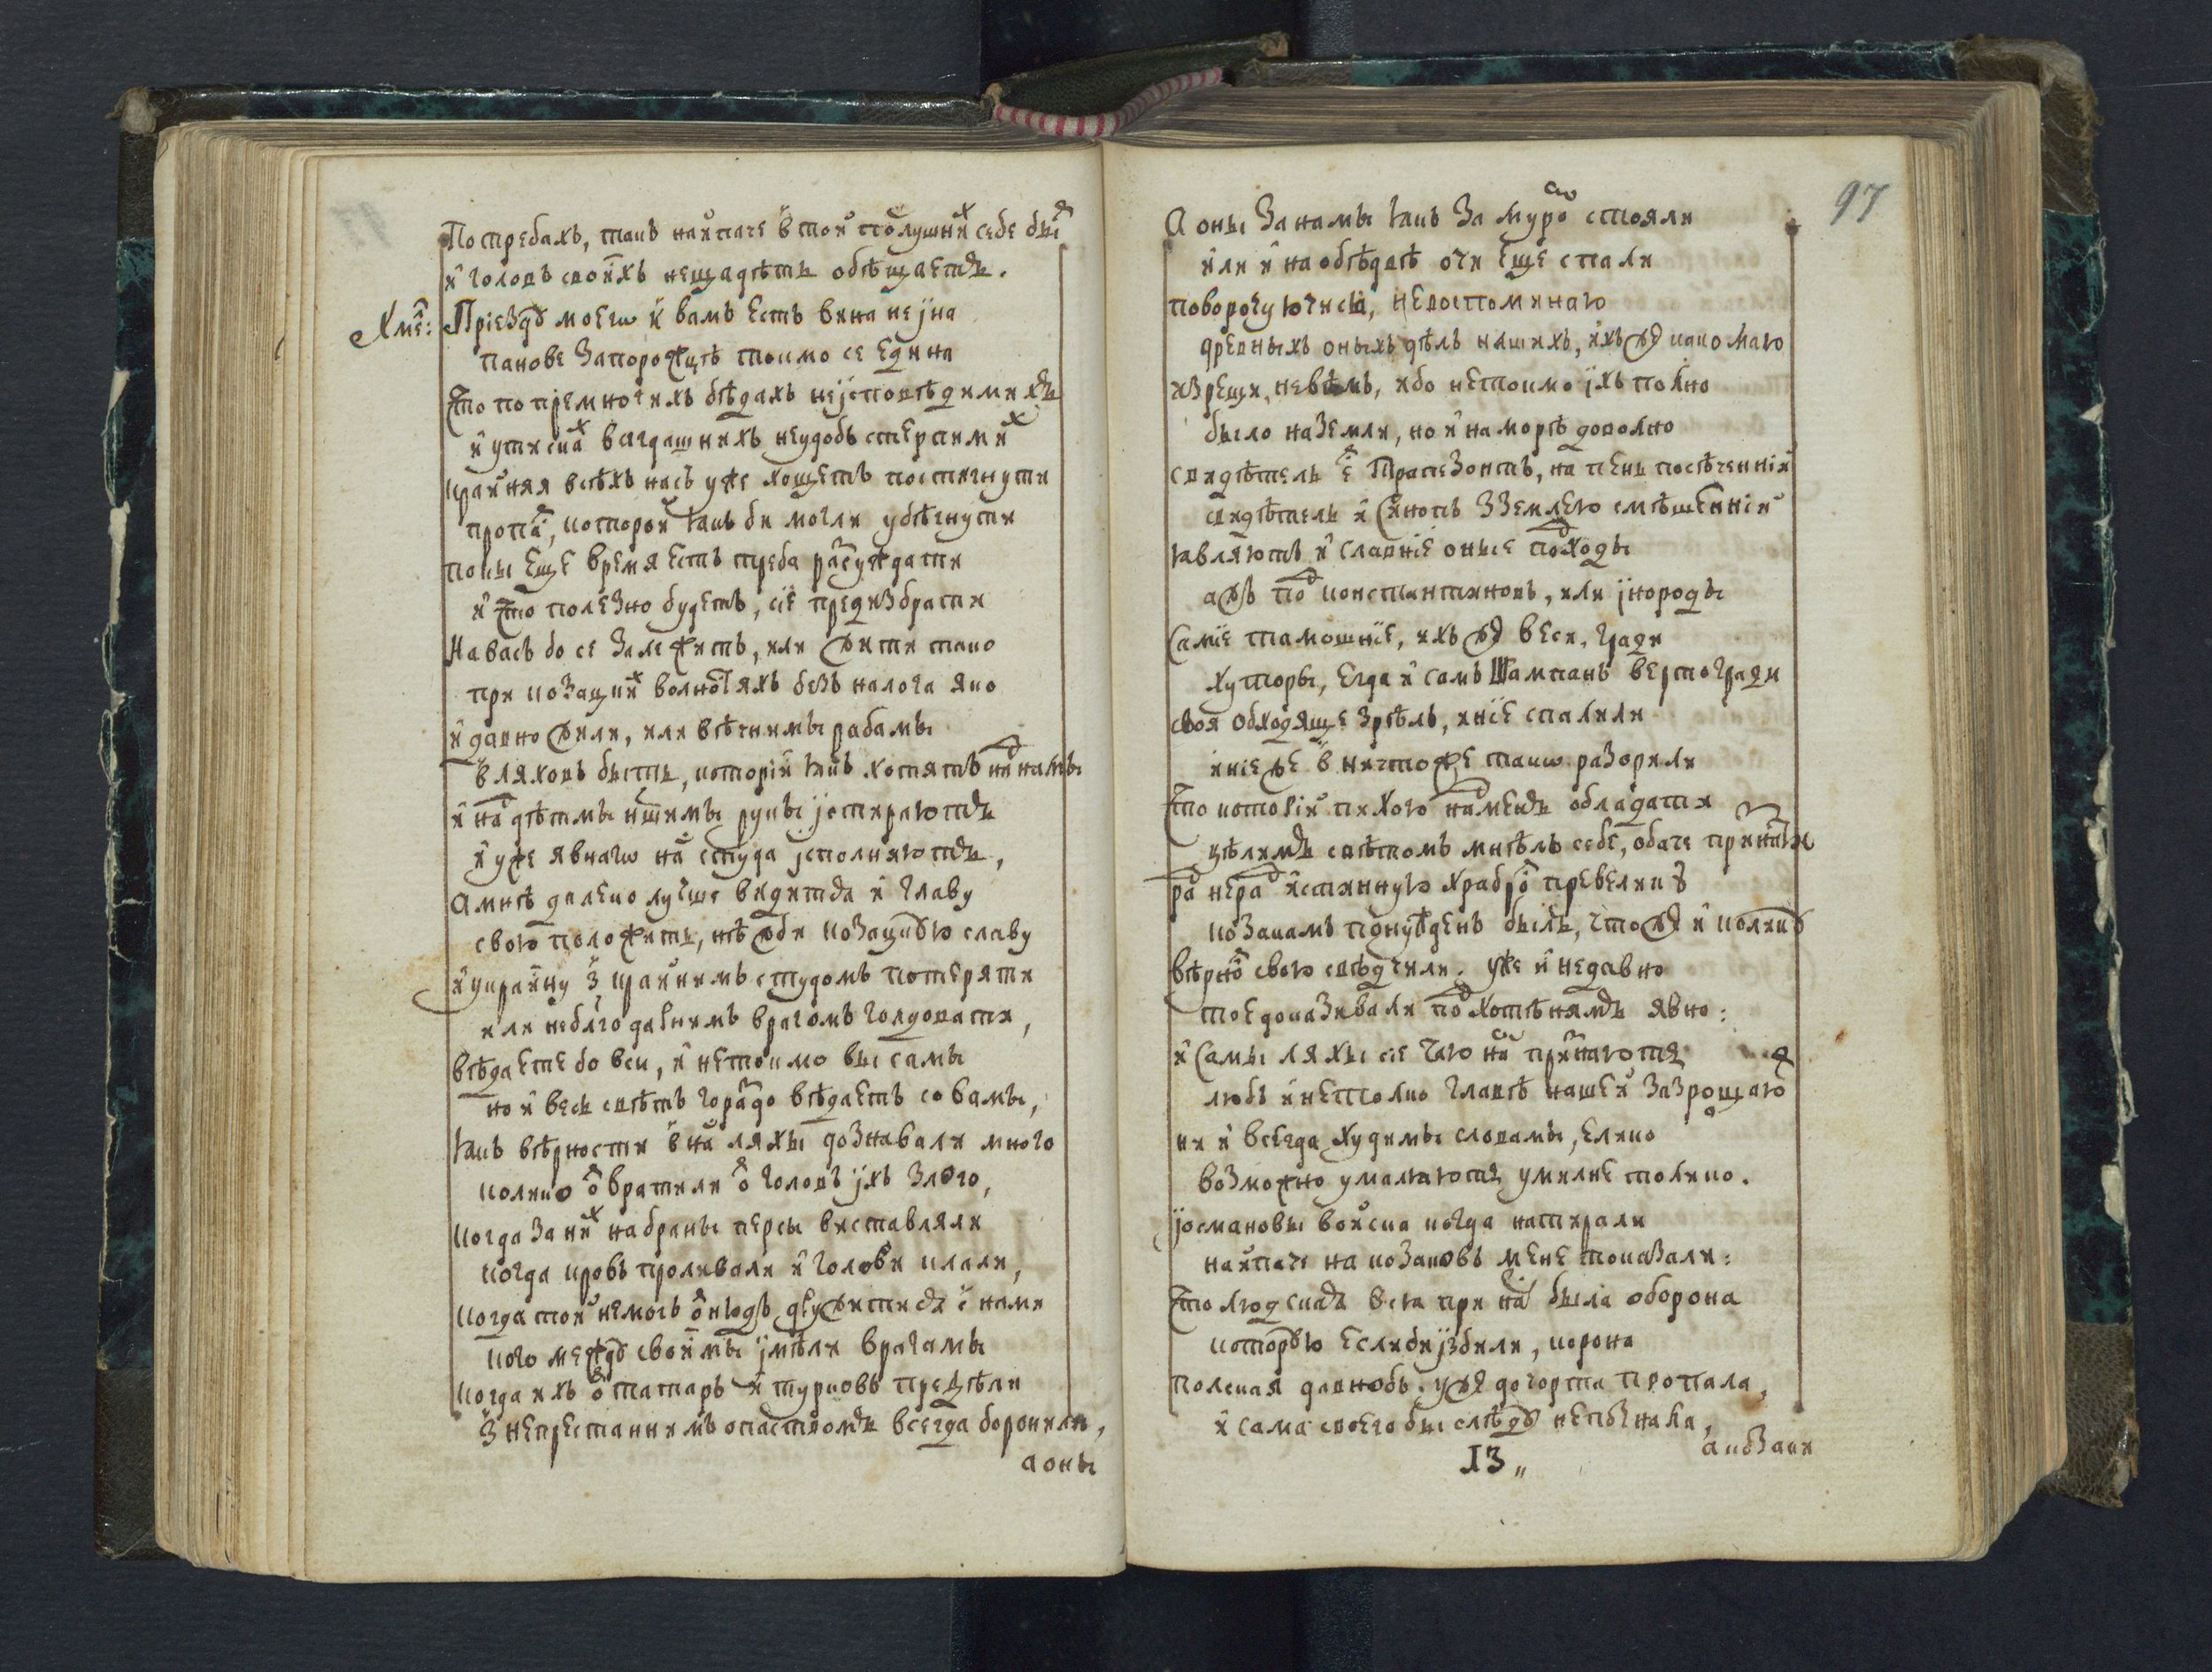 Потребахъ, такъ наипаче в той послушнихъ себе быт
и головъ своихъ нещадѣть обѣщаетъ.
Хме: Приездꙋ моегѡ к вамъ есть вина не іна
панове Запорожцѣ токмо се едина
Что по премногихъ бѣдахъ неісповѣдимихъ
и утискахъ всегдашнихъ неудобь стерпимихъ
крайняя всѣхъ насъ уже хощетъ постигнути
пропасть, которой ꙗкъ би могли убѣгнути
поки еще время есть треба разсуждати
и что полезно будетъ, сіе предизбрати
На васъ бо се залежитъ, или жити тако
при козацкихъ волностяхъ безъ налога яко
и давно жили, или вѣчнимы рабамы
в ляховъ быть, которіи ꙗкъ хотятъ над намы
и над дѣтмы нашимы рукы іспираютъ
и уже явнагѡ нас студа ісполняютъ,
а мнѣ далеко лучше видится и главу
свою положить, нѣжби козацкꙋю славу
и украйну з крайнимъ студомъ потеряти
или неблгодарнимъ врагомъ голдовати,
вѣдаете бо вси, и нетокмо вы самы
но и весь свѣтъ гораздо вѣдаетъ со вамы,
ꙗкъ вѣрности в нас ляхы дознавали много
колико отвратили от головъ іхъ злого,
когда за них на браны персы виставляли
когда кровъ проливали и голови клали,
когда той немогъ отнюдъ дружитися с нами
кого междꙋ своимы імѣли врагамы
когда ихъ от татаръ и турковъ предѣли
З непрестаннимъ опаствомъ всегда боронили,
а оны
97
А оны за намы ꙗкъ за муромъ стояли
или и на обѣдвѣ очи еще спали
поворочуючися, невоспоминаю
древныхъ оныхъ дѣлъ нашихъ, ихъже како маю
изрещи, невѣмъ, ибо нетокмо іхъ полно
было на земли, но и на морѣ доволно
свидѣтель ест Трапезонтъ, на пень посѣченній
свидѣтель и Синопъ з землею смѣшенній
ꙗвляютъ и славніе оные походы
ажъ под константиновъ, или інороды
самие тамошніе, ихъже веси, гради
хуторы, егда и самъ Шампанъ вертогради
своя обходяще зрѣлъ, иніе спалили
иніеже в ничтоже такѡ разорили
Что которій пихою надменъ обладати
цѣлимъ свѣтомъ мнѣлъ себе, обаче признати
рад нерад истинную храброст превеликꙋ
козакамъ понужденъ былъ, чтоже и коликꙋ
вѣрност свою свѣдчили. Уже и недавно
тое доказивали под хотѣнямъ явно:
и самы ляхы сіе чаю нам признаютъ
любъ и нетолко главѣ нашей зазрощаю
ни и всегда худимы словамы, елико
возможно умаляютъ умилне толико.
Іосмановы войска когда натирали
найпаче на козаковъ мене токазали:
Что людская вся при нас была оборона
которꙋю еслиби ізбили, корона
Полская давнобъ уже до чорта пропала,
и сама своего бы слѣдꙋ непознала,
13„
а козаки